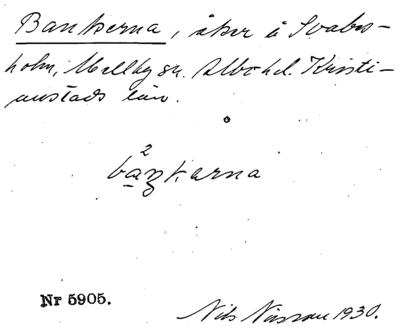 Bankerna, åker å Svabes-
holm, Mellby sn. Albo hd. Kristi-
anstads län.
2
baŋkarna
Nr 5905.
Nils Nilsson 1930.